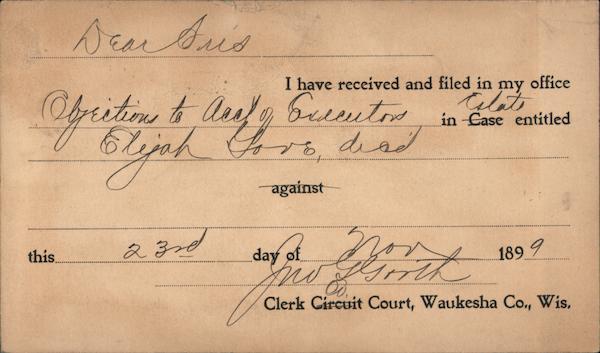 Dear Sirs
I have received and filed in my office
Objections to Acct of Executors in Case Estate entitled
Elijah Gove, decd
against
this 23rd day of Nov 1899
Jno
Co.
Clerk Circuit Court, Waukesha Co., Wis.